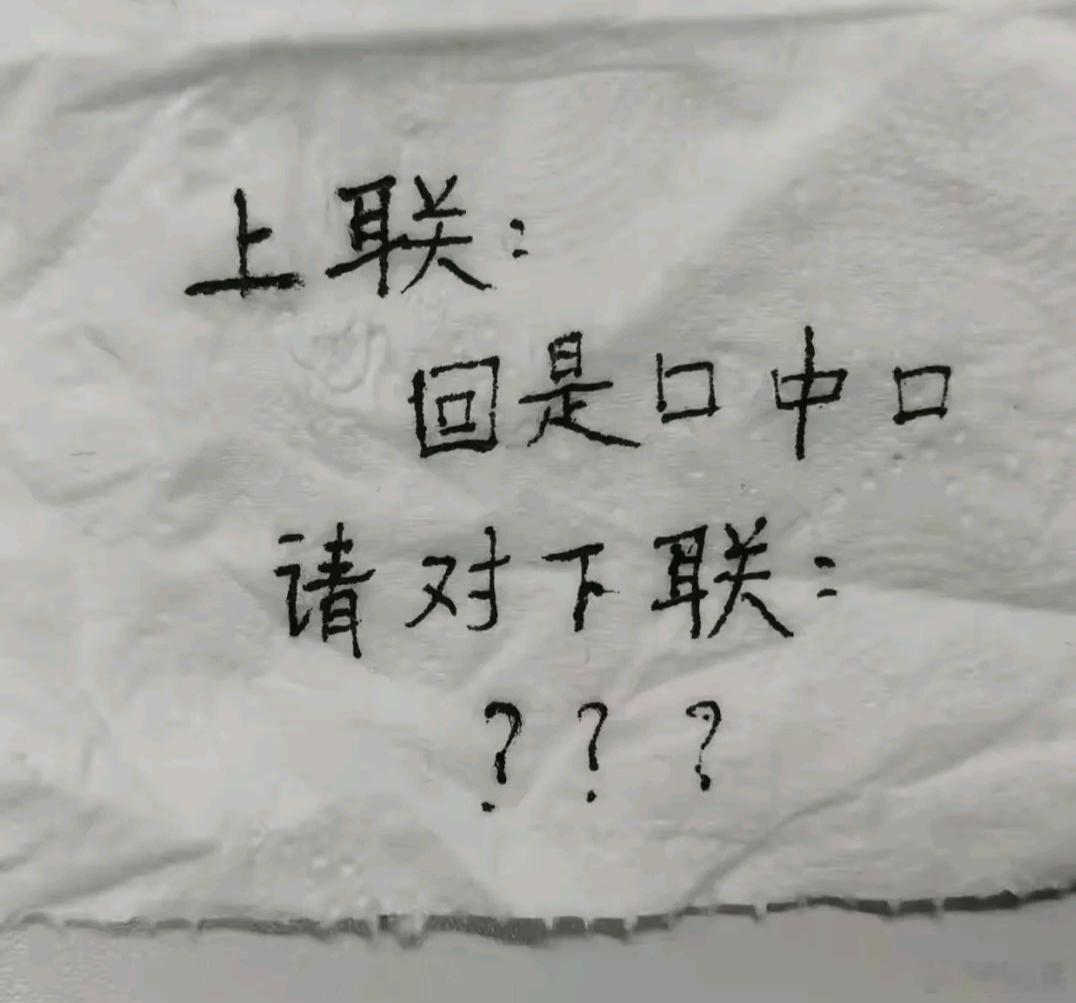 上联：
回是口中口
请对下联：
？？？